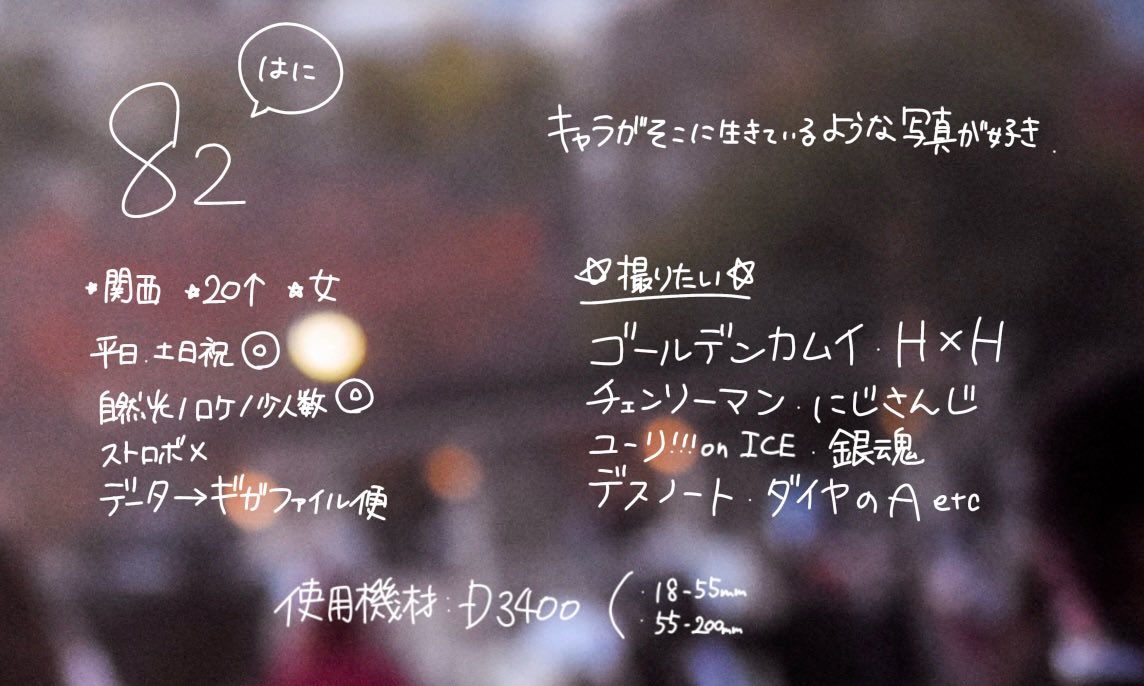 はに
82
キャラがそこに生きているような写真が好き.
★関西 ★20↑ ★女
平日.土日祝◎
自然光/ロケ/少人数◎
ストロボ×
データ→ギガファイル便
☆撮りたい☆
ゴールデンカムイ・H×H
チェンソーマン・にじさんじ
ユーリ!!! on ICE・銀魂
デスノート・ダイヤのA etc
使用機材:D3400 (
・18-55mm
・55-200mm